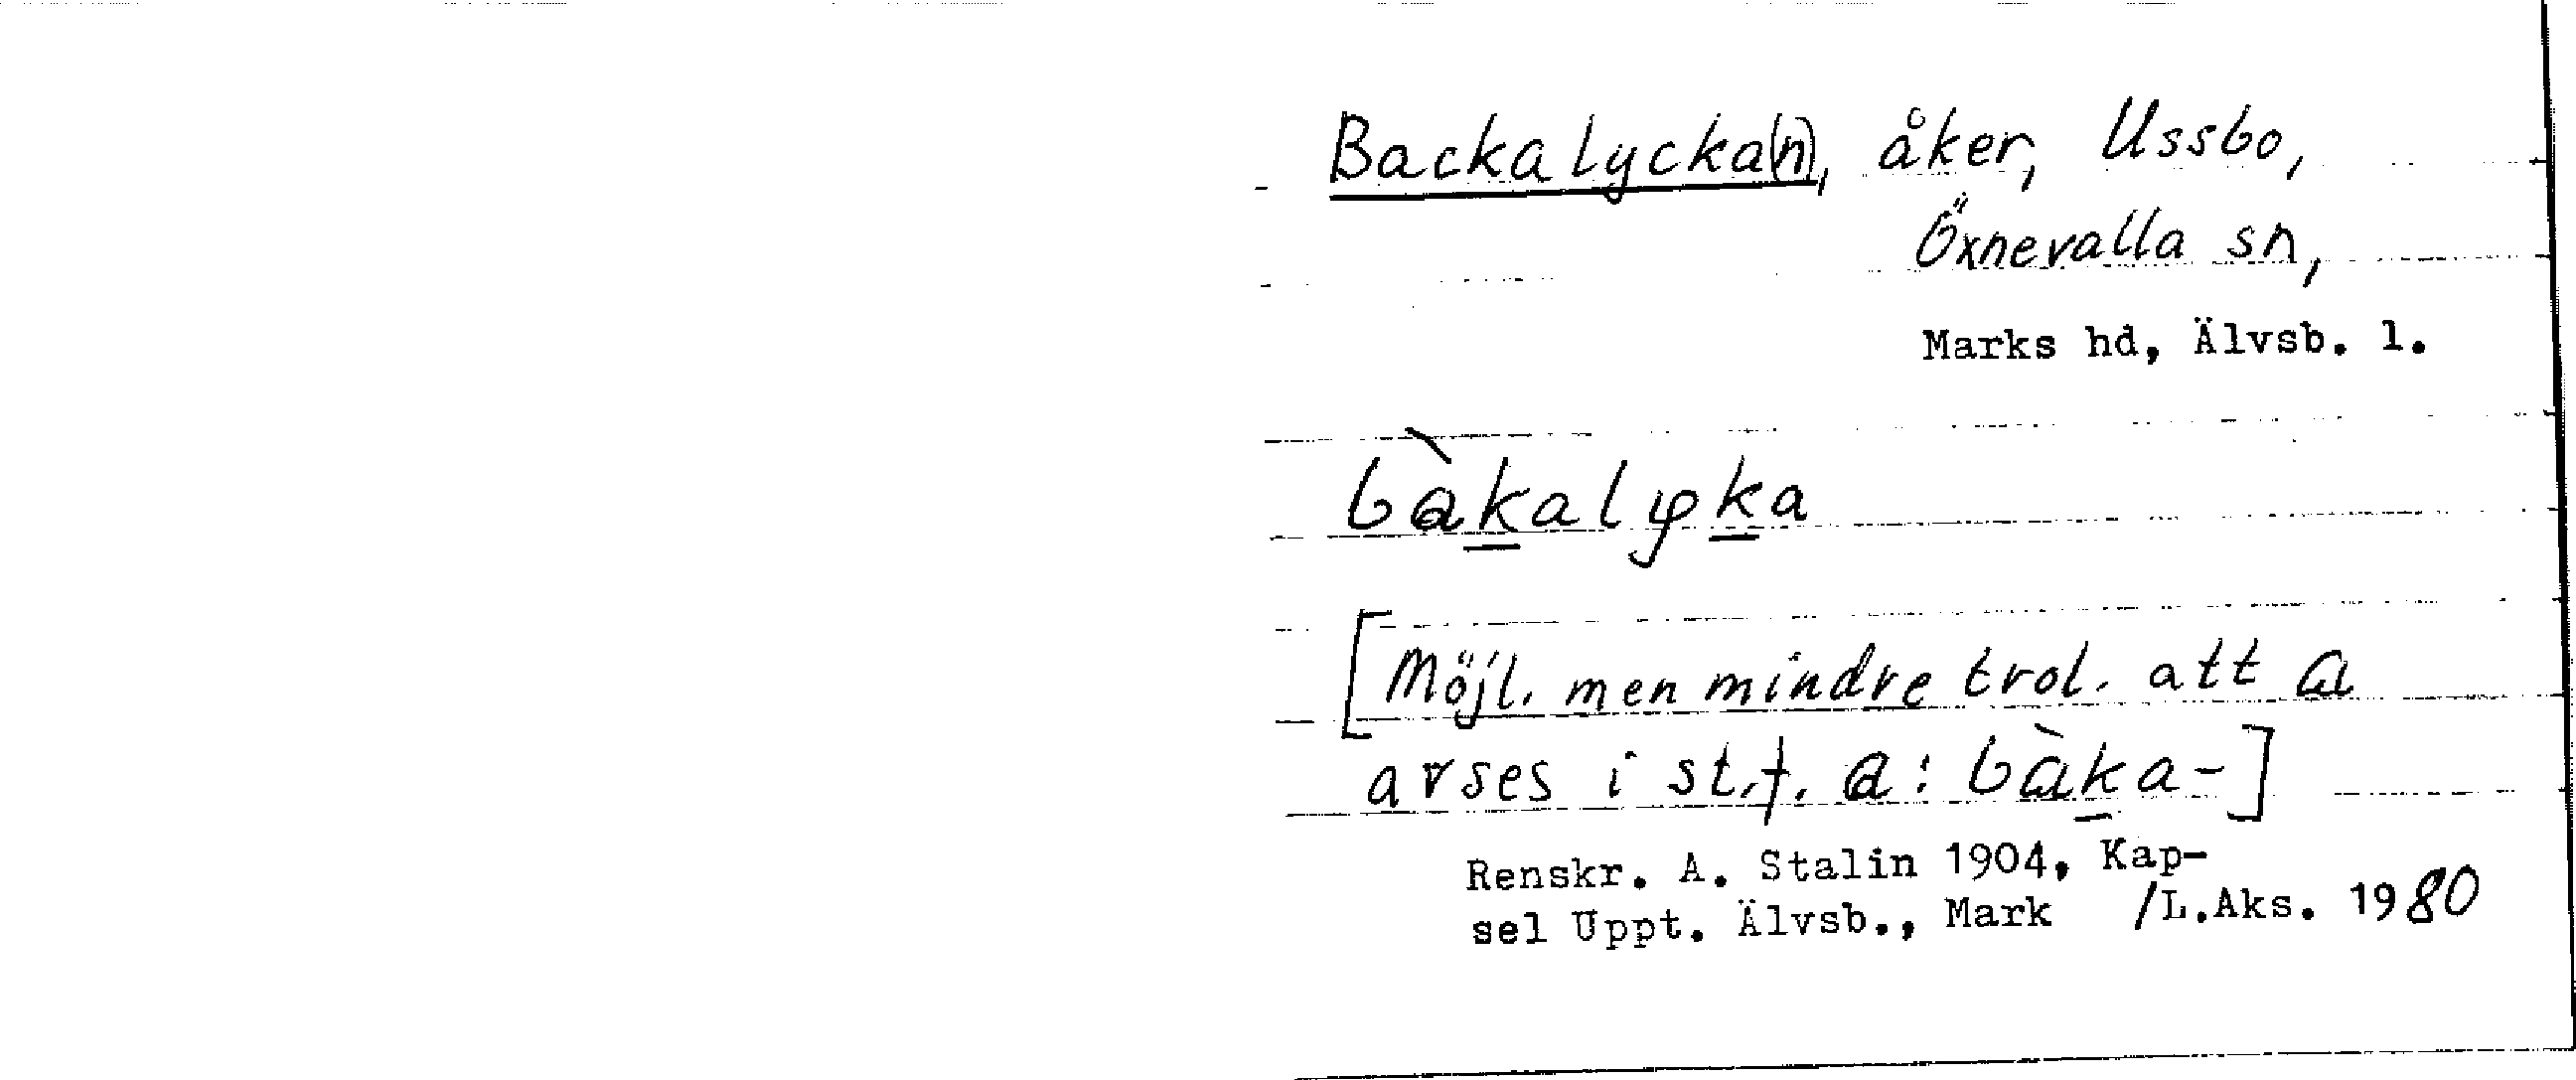 Backalycka(n), åker, Ussbo,
Öxnevalla sn,
Marks hd, Älvsb. l.
bàkalyka
[Möjl. men mindre trol. att a
avses i st. f. a: bàka-]
Renskr. A. Stalin 1904, Kap-
sel Uppt. Älvsb., Mark /L.Aks. 1980